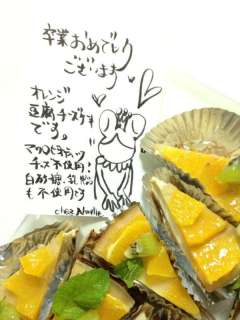 卒業おめでとう
ございます
オレンジ
豆腐チーズケーキ
です。
マクロビオティック
チーズ不使用！
白砂糖、乳脂
も不使用です
chez